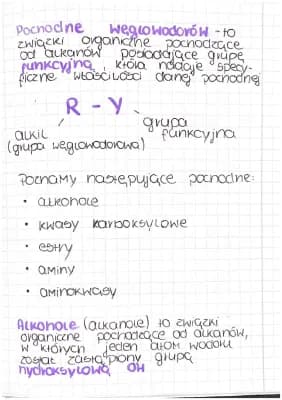 Pochodne węglowodorów - to
związki organiczne pochodzące
od alkanów posiadające grupę
funkcyjną, która nadaje specy-
ficzne właściwości danej pochodnej
R - Y
alkil
(grupa węglowodorowa)
grupa
funkcyjna
Poznamy następujące pochodne:
• alkohole
• kwasy karboksylowe
• estry
• aminy
• aminokwasy
Alkohole (alkanole) to związki
organiczne pochodzące od alkanów,
w których jeden atom wodoru
został zastąpiony grupą
hydroksylową OH